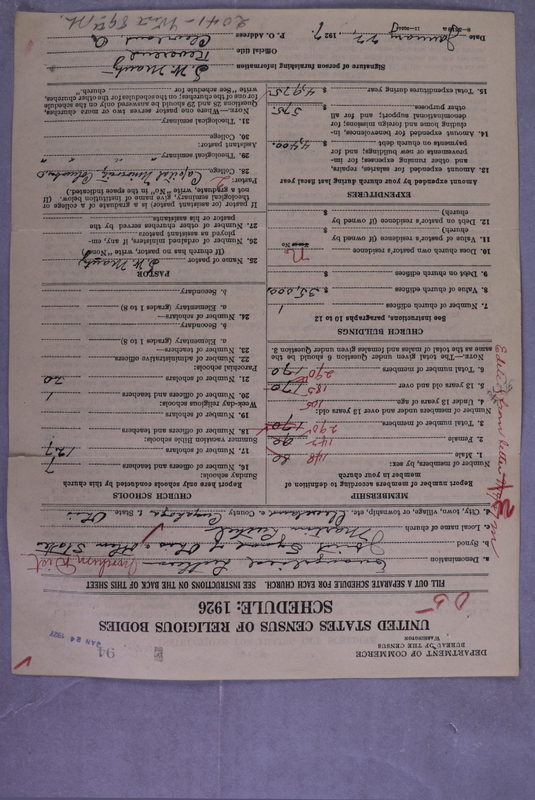 94
JAN 24 1927
DEPARTMENT OF COMMERCE
BUREAU OF THE CENSUS
WASHINGTON
UNITED STATES CENSUS OF RELIGIOUS BODIES
SCHEDULE: 1926
FILL OUT A SEPARATE SCHEDULE FOR EACH CHURCH. SEE INSTRUCTIONS ON THE BACK OF THIS SHEET
a. Denomination Evangelical Lutheran
b. Synod Joint Synod of Ohio & Other States
c. Local name of church Martin Luther
d. City, town, village, or township, etc. Cleveland e. County Cuyahoga f. State Ohio
MEMBERSHIP
Report number of members according to definition of member in year church
Number of members, by sex:
1. Male 148 80
2. Female 142 90
3. Total number of members 290 170
Number of members under and over 13 years old:
4. Under 13 years of age 105
5. 13 years old and over 185 170
6. Total number of members 290 170
NOTE.—The total given under Question 6 should be the same as the total of males and females given under Question 3.
CHURCH BUILDINGS
See instructions, paragraphs 10 to 12
7. Number of church edifices 1
8. Value of church edifices $ 35,000
9. Debt on church edifices $
10. Does church own pastor's residence No
11. Value of pastor's residence (if owned by church) $
12. Debt on pastor's residence (if owned by church) $
EXPENDITURES
Amount expended by your church during last fiscal year
13. Amount expended for salaries, repairs, and other running expenses; for improvements or new buildings; and for payments on church debt $ 4,400
14. Amount expended for benevolences, including home and foreign missions; for denominational support; and for all other purposes $ 575
15. Total expenditures during year $ 4,975
CHURCH SCHOOLS
Report here only schools conducted by this church
Sunday schools:
16. Number of officers and teachers 7
17. Number of scholars 127
Summer vacation Bible schools:
18. Number of officers and teachers
19. Number of scholars
Week-day religious schools:
20. Number of officers and teachers 1
21. Number of scholars 20
Parochial schools:
22. Number of administrative officers
23. Number of teachers—
a. Elementary (grades 1 to 8)
b. Secondary
24. Number of scholars—
a. Elementary (grades 1 to 8)
b. Secondary
PASTOR
25. Name of pastor
(If church has no pastor, write "None")
26. Number of ordained ministers, if any, employed as assistant pastors
27. Number of other churches served by the pastor or his assistants
If pastor (or assistant pastor) is a graduate of a college or theological seminary, give name of institution below. (If not a graduate, write "No" in the space indicated.)
Pastor:
28. College Capital University Columbus, O
29. Theological seminary " " "
Assistant pastor:
30. College
31. Theological seminary
NOTE.—Where one pastor serves two or more churches, Questions 28 and 29 should be answered only on the schedule for one of the churches; on the schedules for the other churches, write "See schedule for church."
Signature of person furnishing information
Official title Reverend
P. O. Address Cleveland O.
Date January 22, 1927